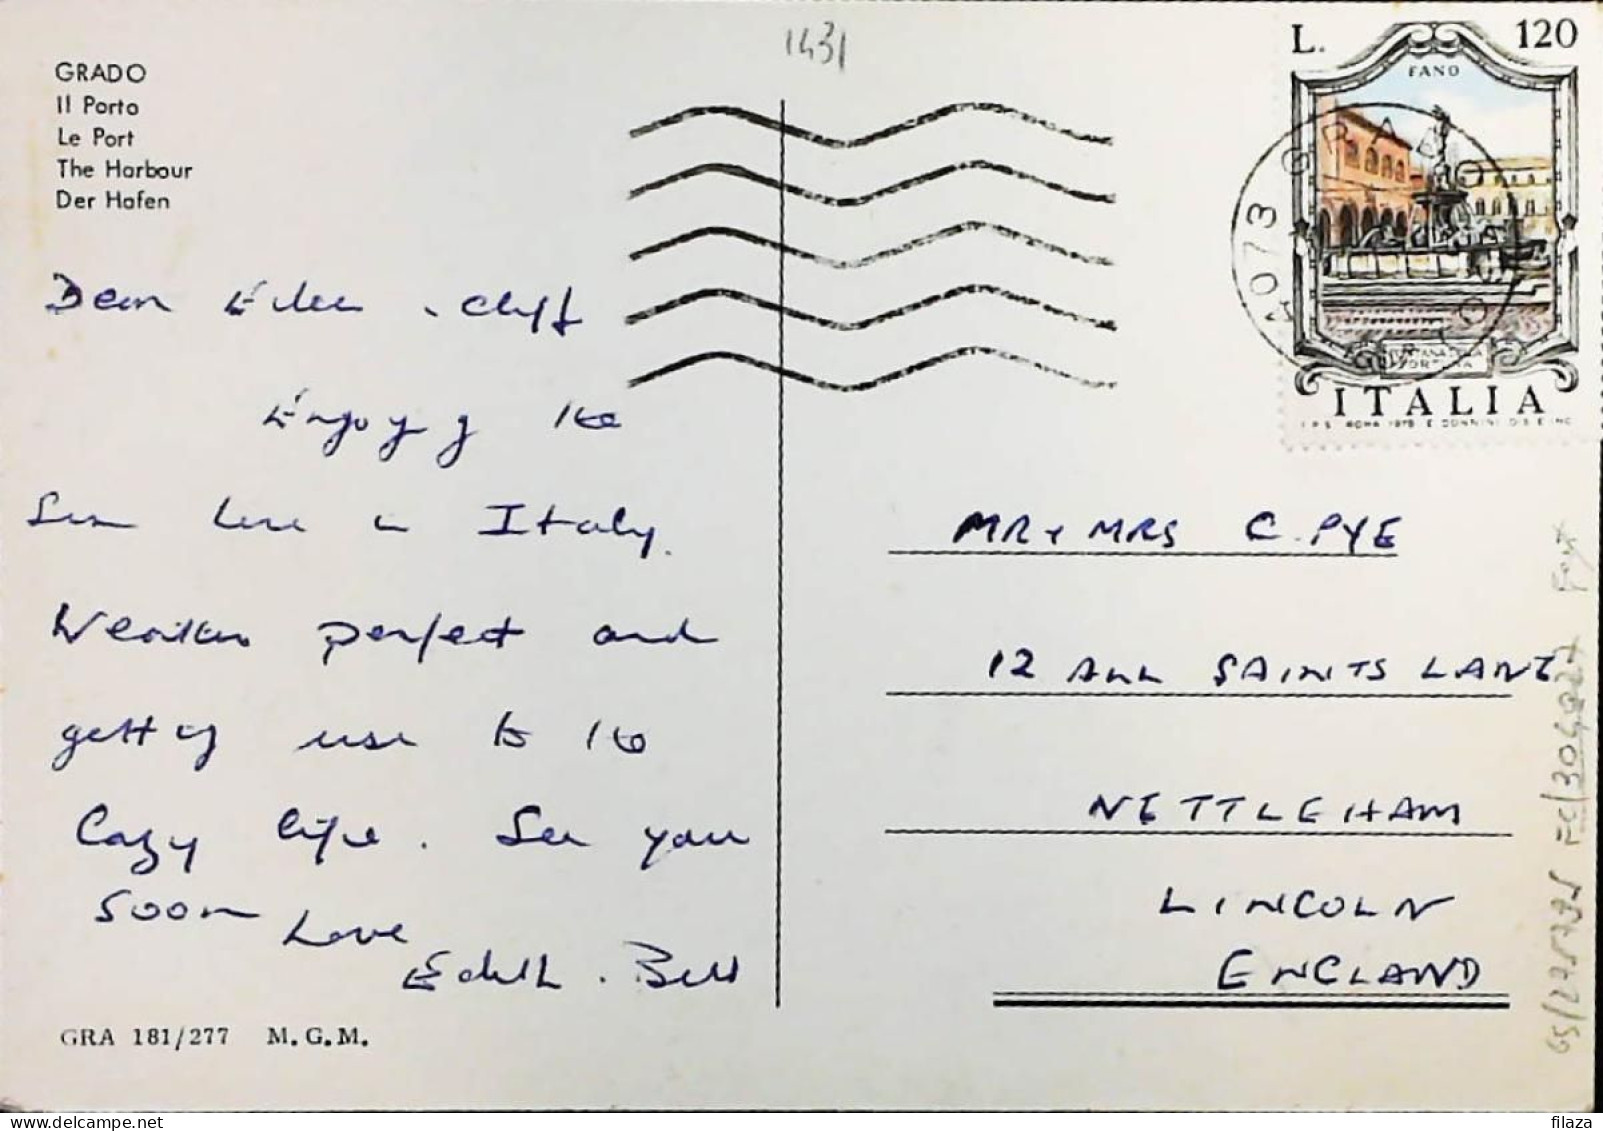 1431
GRADO
Il Porto
Le Port
The Harbour
Der Hafen
L. 120
FANO
34073 GRADO
FONTANA DELLA
FORTUNA
ITALIA
I.P.S. ROMA 1978 E DONNINI DIS E INC
Dear Eileen . Cliff
Enjoying the
Sun here in Italy.
Weather perfect and
getting use to the
Lazy life. See you
soon Love
Edith . Bill
MR & MRS C. PYE
12 ALL SAINTS LANE
NETTLEHAM
LINCOLN
ENGLAND
GRA 181/277 M. G. M.
filaza